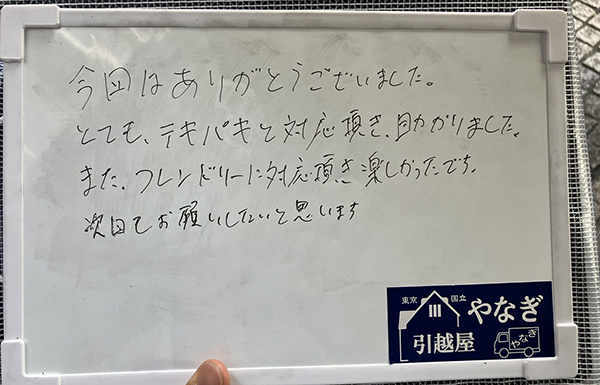 今回はありがとうございました。
とても、テキパキと対応頂き、助かりました。
また、フレンドリーに対応頂き楽しかったです。
次回もお願いしたいと思います
東京 国立
やなぎ
引越屋
やなぎ